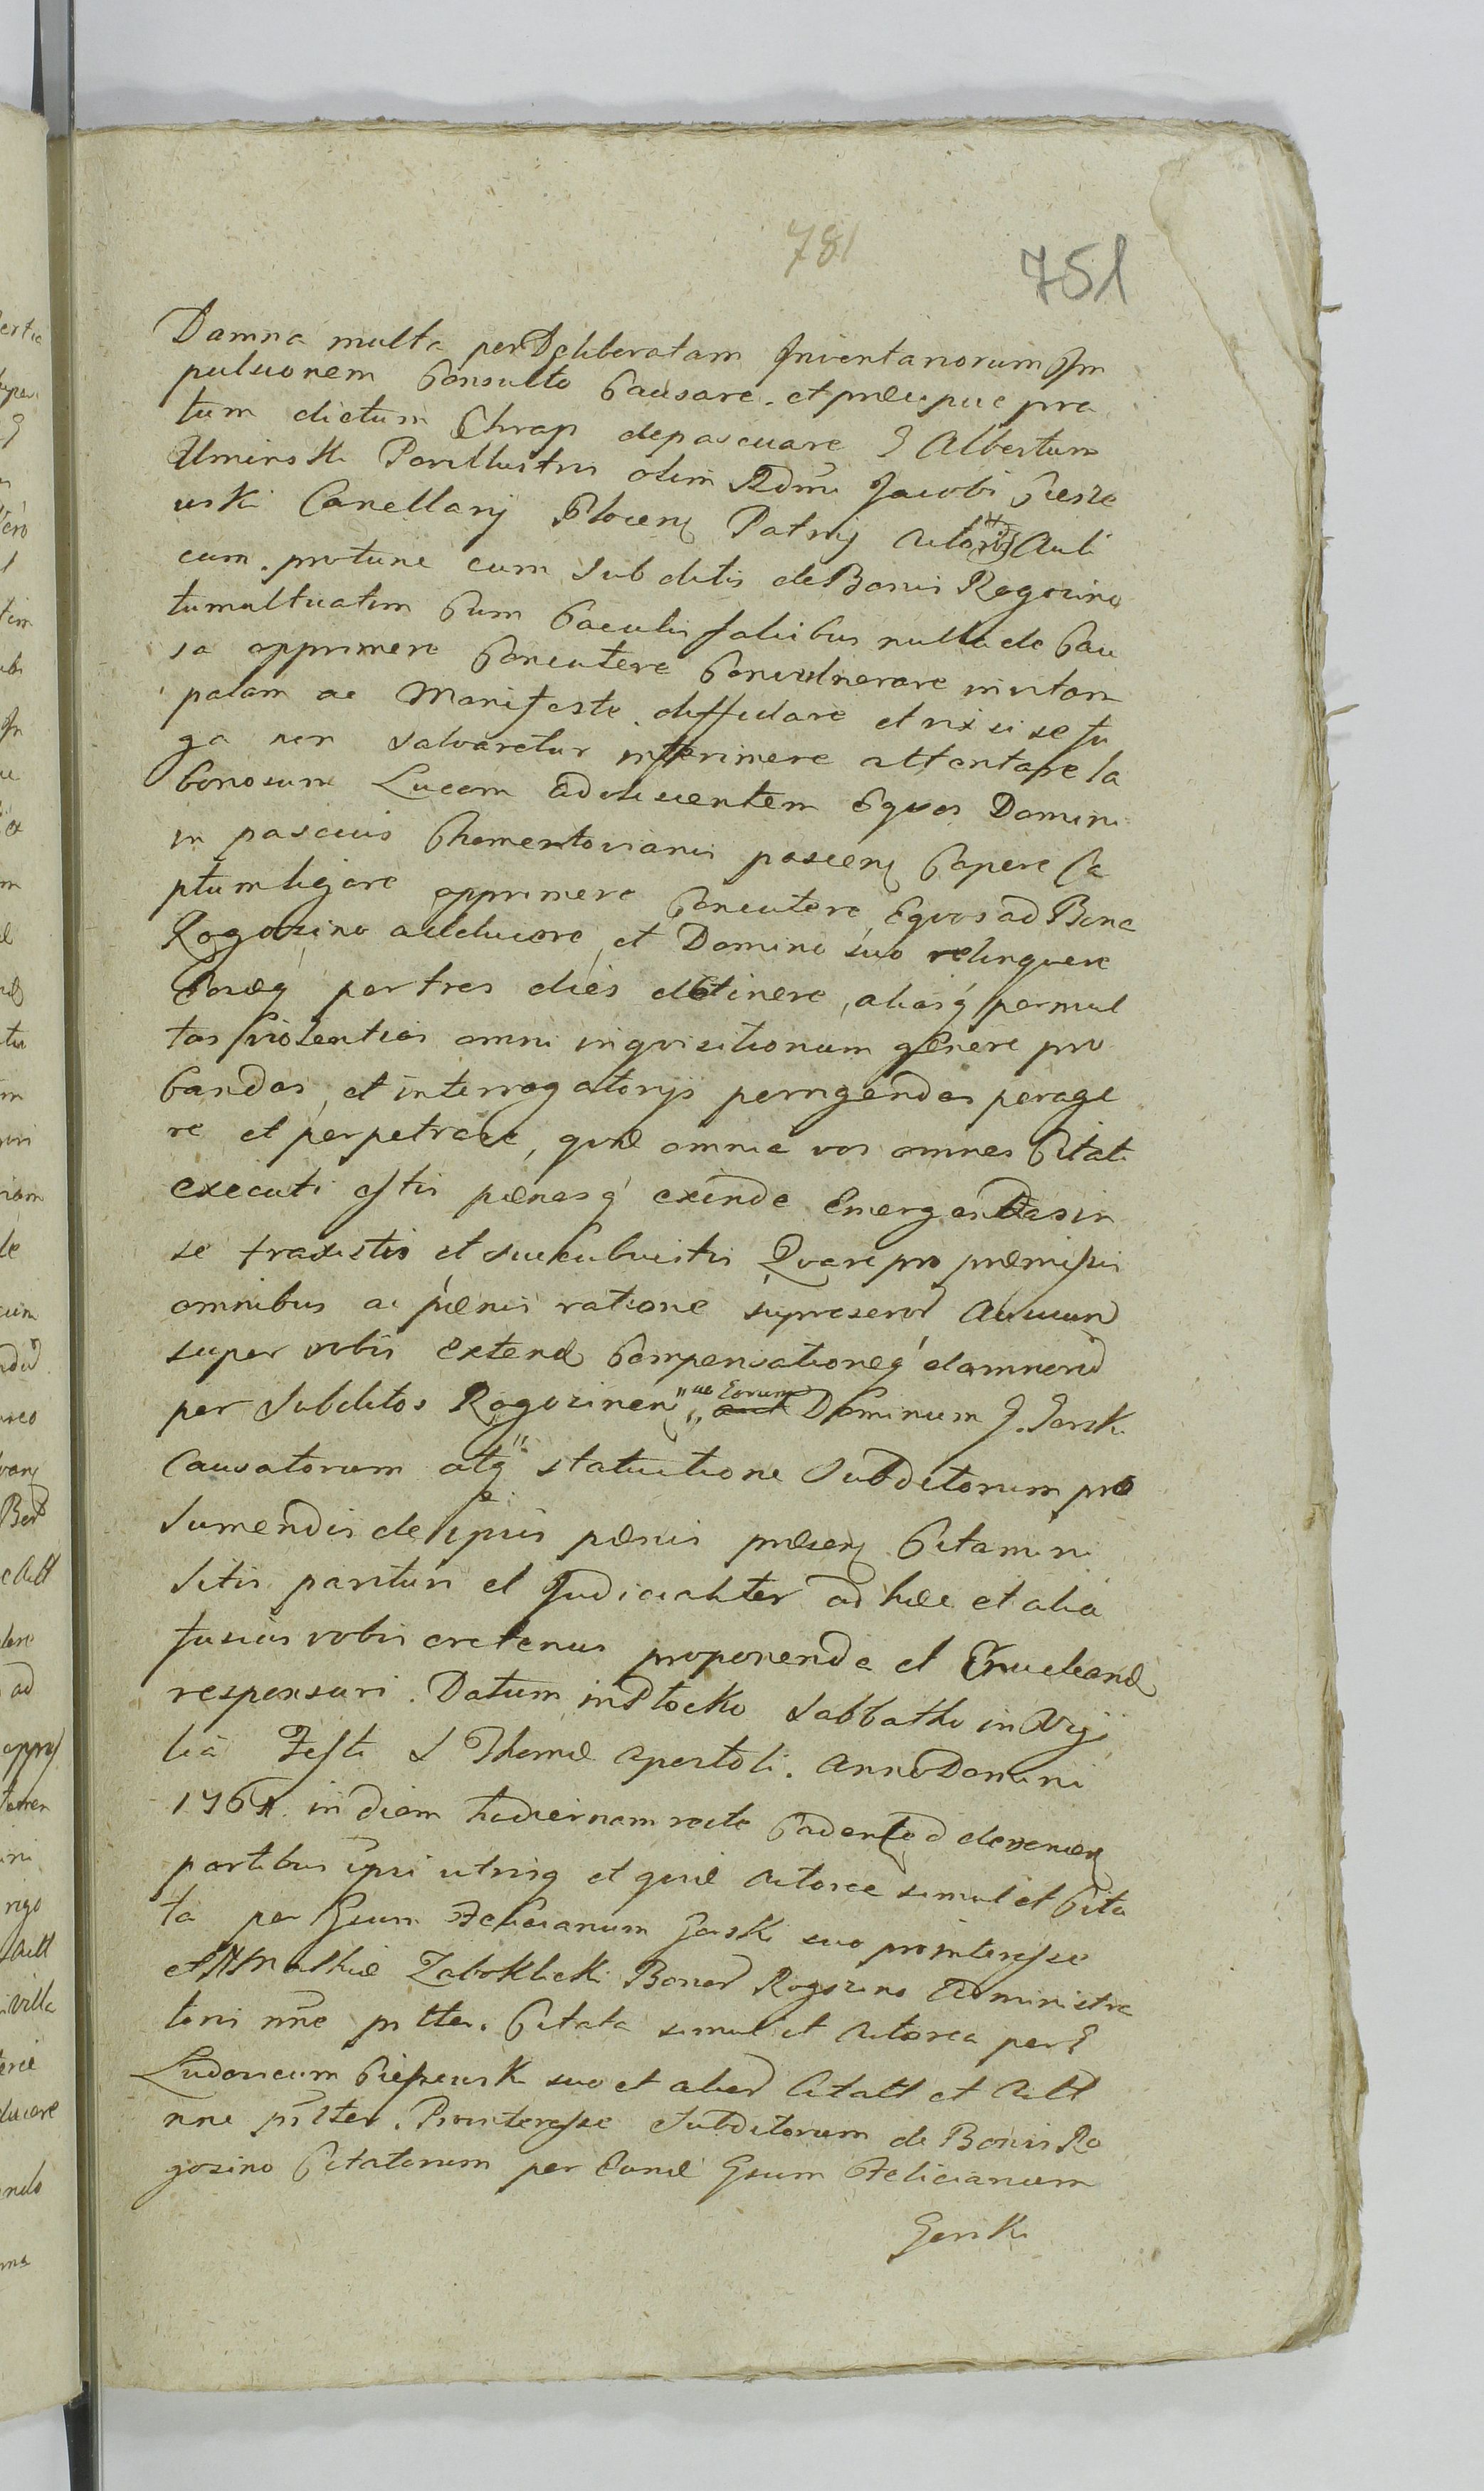 781
751
Damna multa per Deliberatam Inventariorum Im
pulsionem Consulto Causare. et præcipue pra
tum dictum Chrap depascuare G Albertum
Uminski Perillustris olim Rdmi Jacobi Ciesze
wski Cancellarij Plocen Patrui Auli
cum. protunc cum Subditis de Bonis Rogozino
tumultuatim Cum Baculis falcibus nulla de Cau
sa opprimere Concutere Convulnerare invitam
palam ac Manifeste. diffidare et nisi se fu
ga non salvaretur interimere attentare la
boriosum Lucam adolescentem Equos Domini
in pascuis Chomentovianis pascen Capere Ca
ptum ligare opprimere Concutere Equos ad Bona
Rogozino adducere, et Domino suo relinquere
Eosq per tres dies detinere, aliasq permul
tas Violentias omni inquisitionum genere pro
bandas, et interrogatorijs pernigendas perage
re et perpetrare, quæ omnia vos omnes Citati
executi estis pænasq exinde Emergendas in
se traxistis et succubuistis Quare pro præmissis
omnibus ac pænis ratione supraser Aucun
super vobis extend Compensationeq damnor
per Subditos Rogozinen ac Eorum Dominum G. Gorski
Causatorum atq statuitione Subditorum pro
sumendis de ipsis pænis præsen Citamini
Sitis parituri et Judicialiter ad hæc et alia
fusius vobis oretenus proponenda et Enucleand
responsuri. Datum in Plocko Sabbatho in Vigi
lia Festi S Thomæ Apostoli. Anno Domini
1761. in diem hodiernam recte Caden devenien
partibus ipsi utrisq et quid Actorea simul et Cita
ta per Gsum Felicianum Gorski suo pro interesse
et Mathiæ Zaboklicki Bonor Rogozino Administra
toris nne pltter. Citata simul et Actorea per G
Ludovicum Ciepsiewski suo et alior Citatt et Actt
nne pltter. Pro interesse Subditorum de Bonis Ro
gozino Citatorum per Eund Gsum Felicianum
Gorski